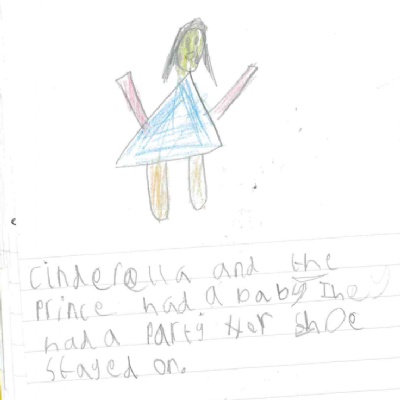 Cinderella and the
Prince had a baby They
had a Party. Her shoe
Stayed on.